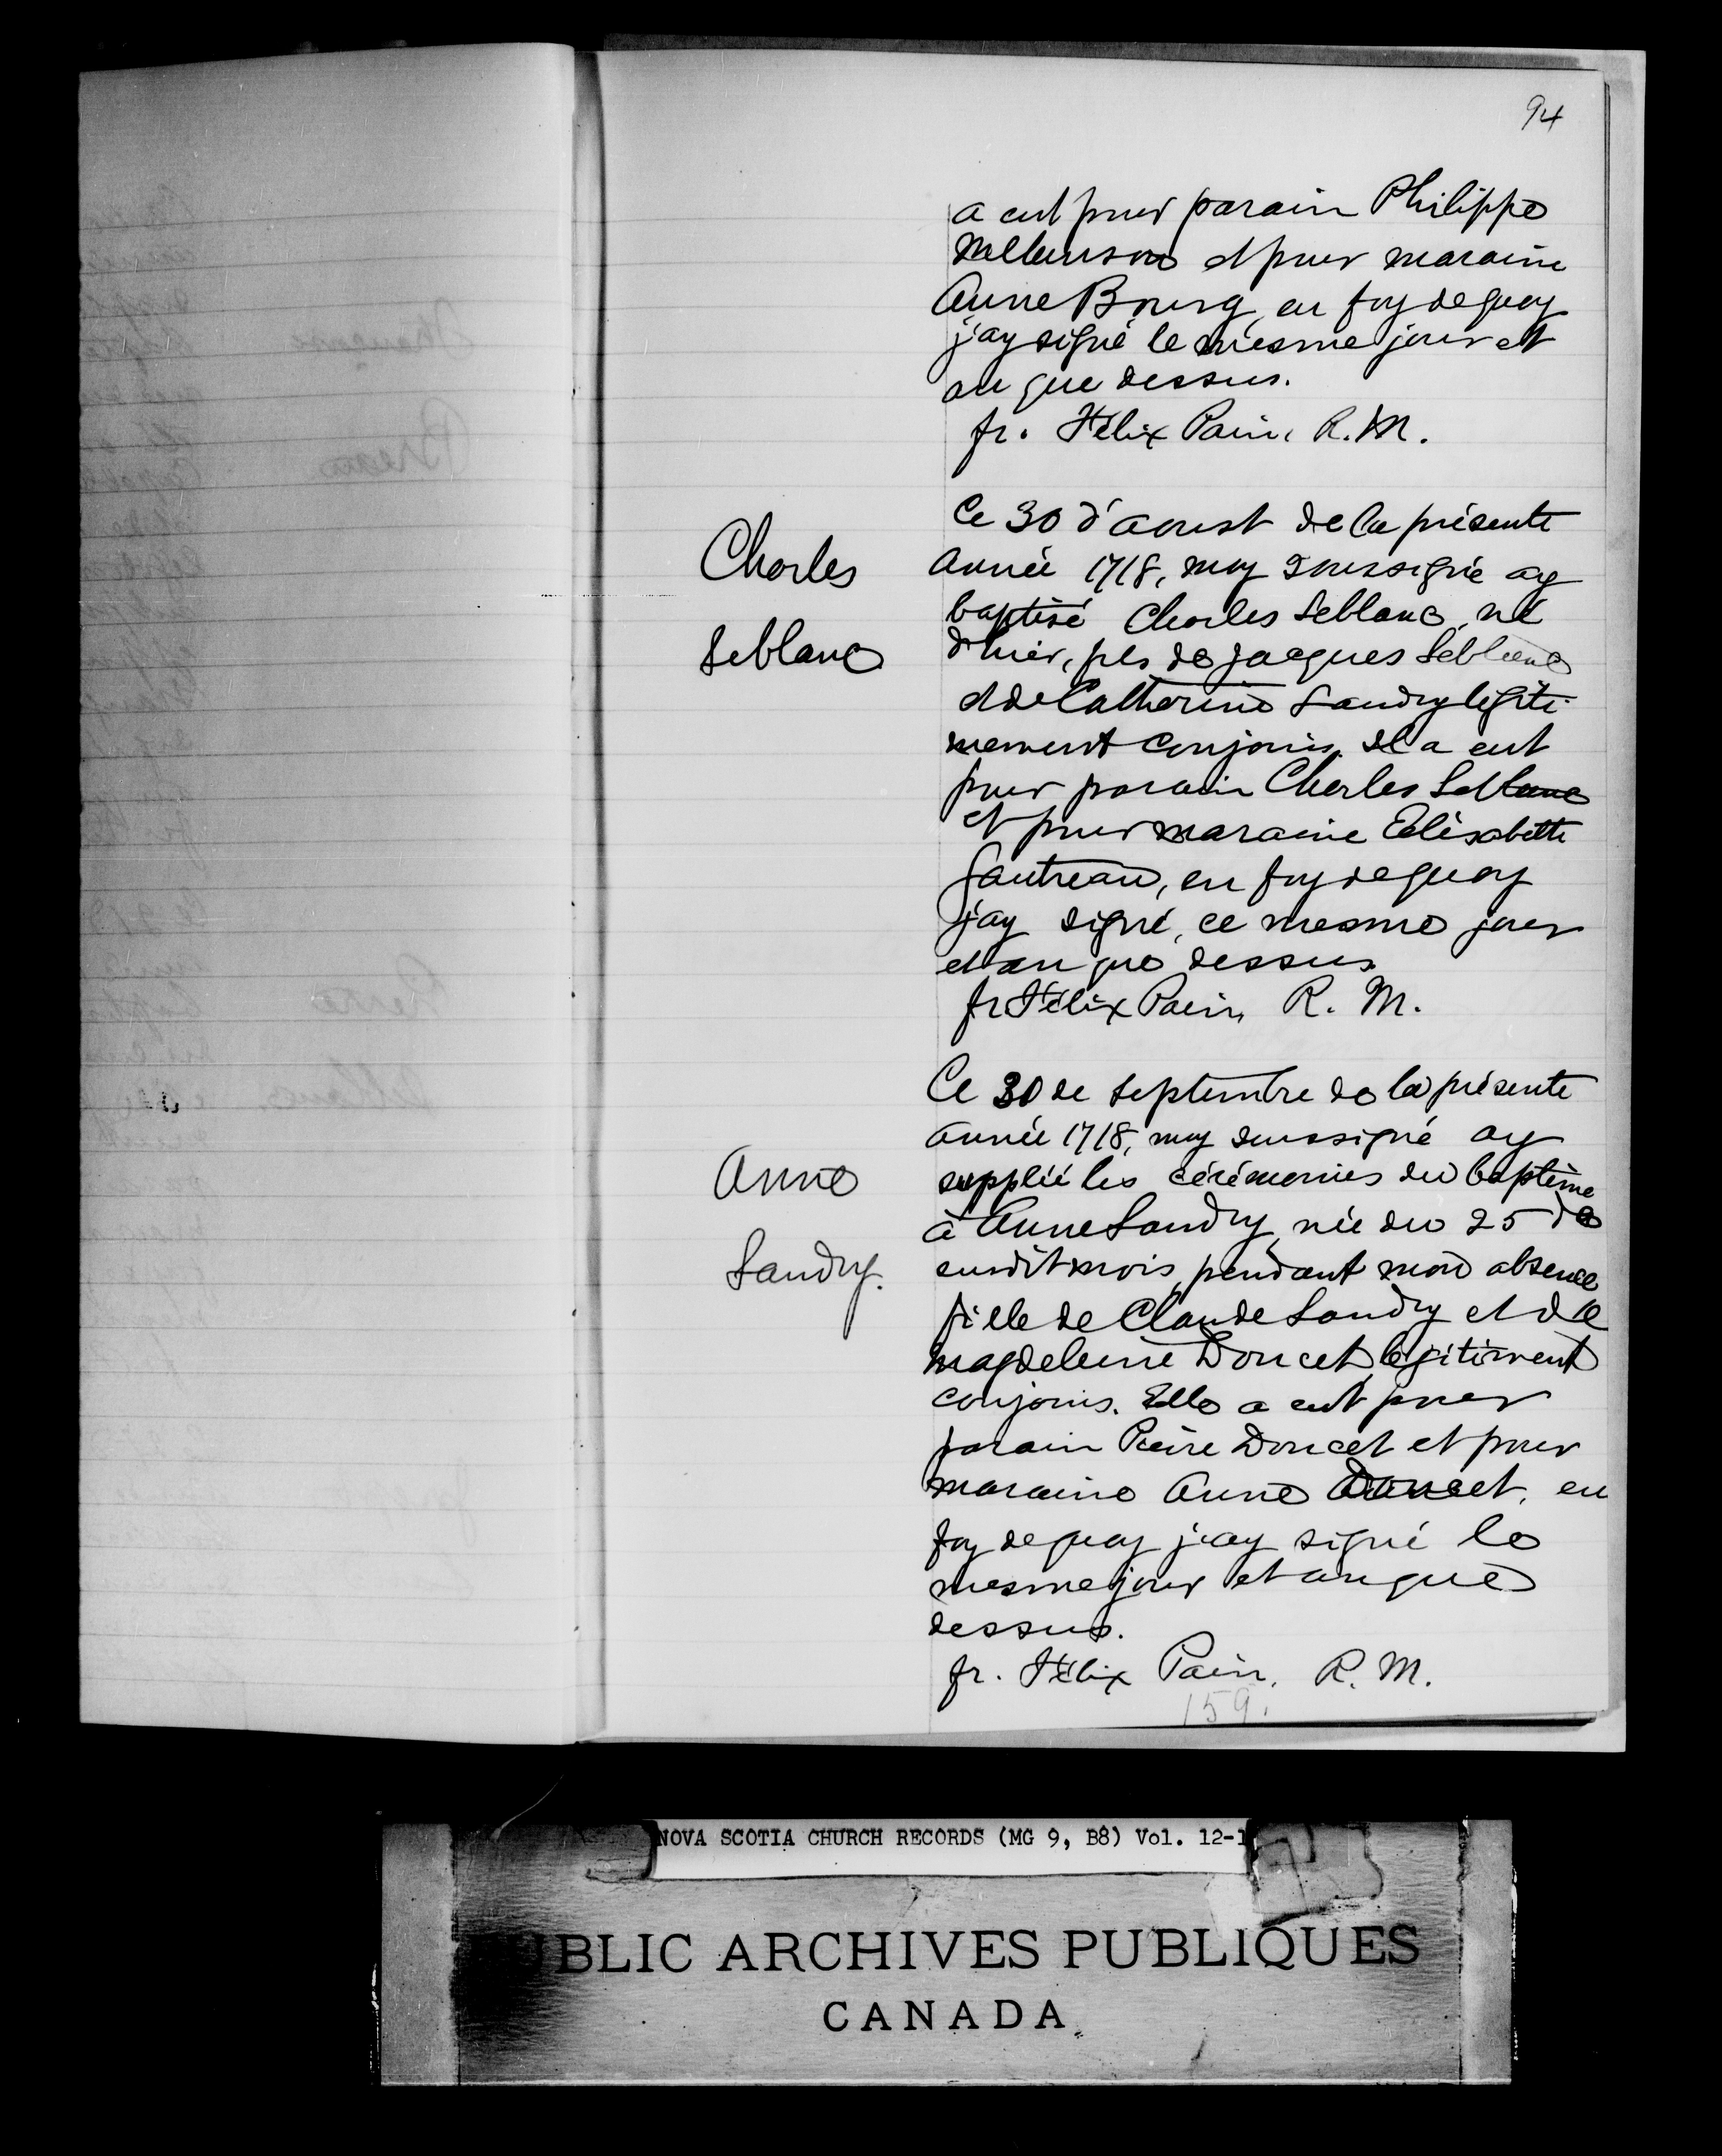 94
a eut pour parain Philippe
Mellenson et pour maraine
Anne Bourg, en foy de quoy
j'ay signé le mesme jour et
an que dessus.
fr. Félix Pain, R. M.
Charles
Leblanc
Ce 30 d'aoust de la présente
année 1718, moy soussigné ay
baptisé Charles Leblanc, né
d'hier, fils de Jacques Leblanc
et de Catherine Landry légiti-
mement conjoins. Il a eut
pour parain Charles Leblanc
et pour maraine Elisabette
Gautreau, en foy de quoy
j'ay signé, ce mesme jour
et an que dessus.
fr Félix Pain, R. M.
Anne
Landry.
Ce 30 de septembre de la présente
année 1718, moy soussigné ay
supplié les cérémonies du baptême
à Anne Landry, née du 25 de
susdit mois, pendant mon absence
fille de Claude Landry et de
Magdeleine Doucet, légitiment
conjoins. Elle a eut pour
parain Pierre Doucet et pour
maraine Anne Doucet, en
foy de quoy j'ay signé le
mesme jour et an que
dessus.
fr. Félix Pain, R. M.
159.
NOVA SCOTIA CHURCH RECORDS (MG 9, B8) Vol. 12-1
PUBLIC ARCHIVES PUBLIQUES
CANADA